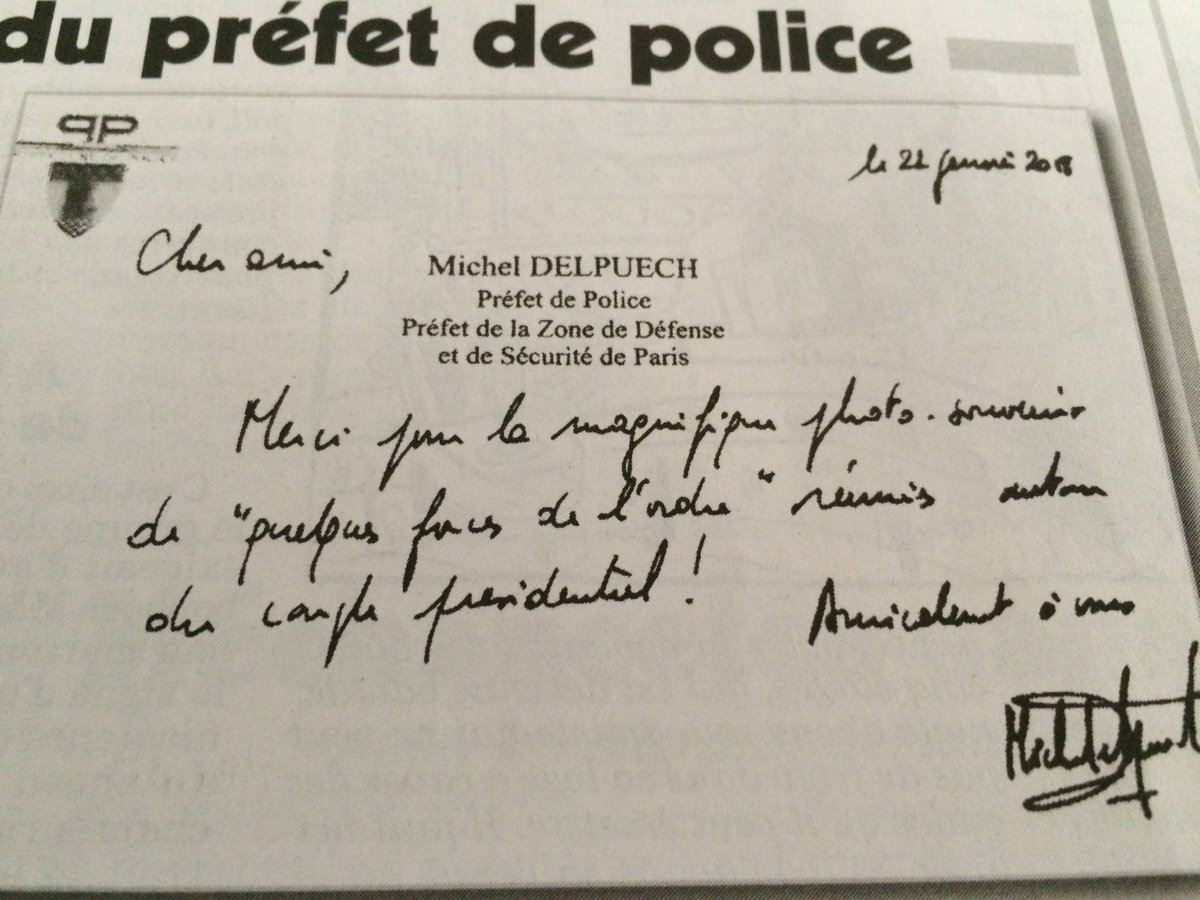 du préfet de police
PP
le 22 janvier 2018
Cher ami,
Michel DELPUECH
Préfet de Police
Préfet de la Zone de Défense
et de Sécurité de Paris
Merci pour la magnifique photo-souvenir
de "quelques forces de l'ordre" réunies autour
du couple présidentiel !
Amicalement à vous
Michel Delpuech